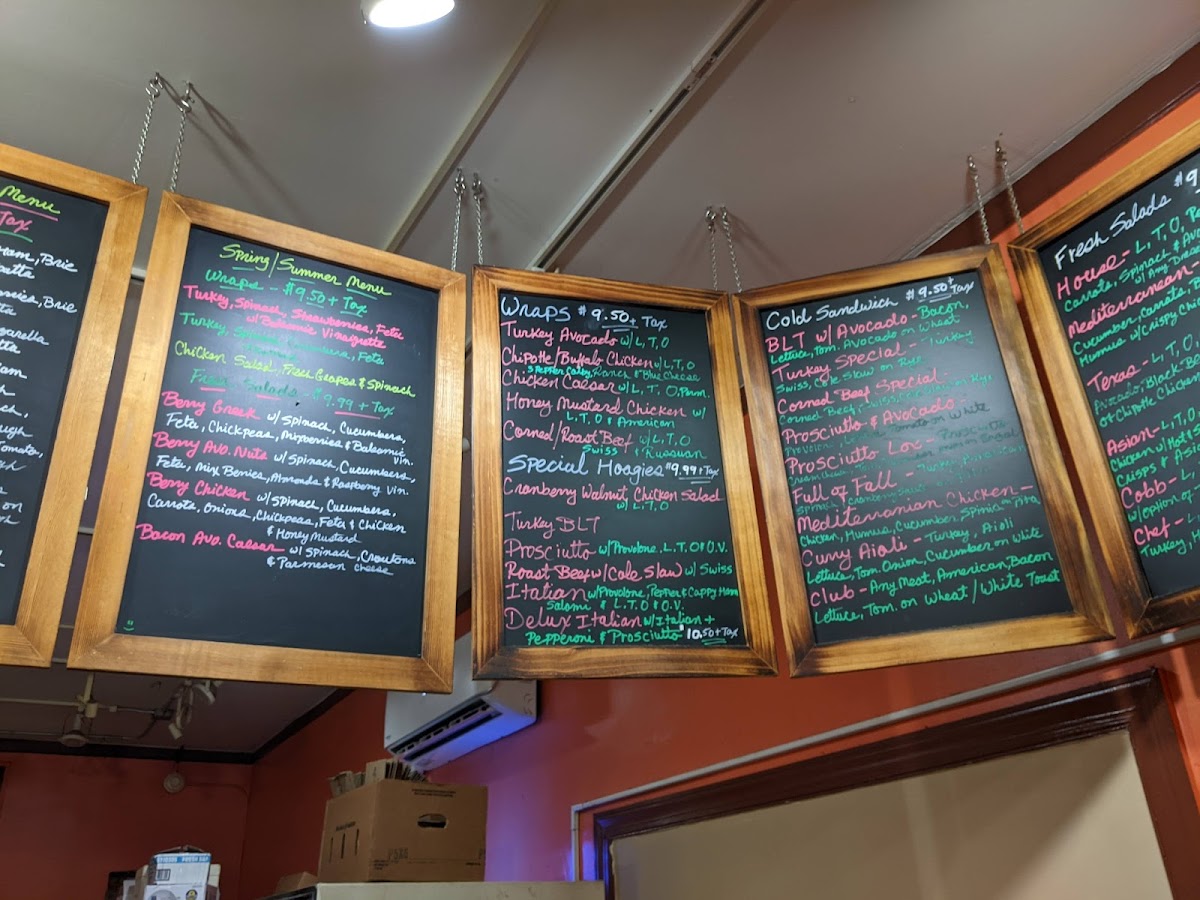 Menu
Tax
Ham, Brie
Brie
Spring/Summer Menu
Wraps - $9.50 + Tax
Turkey, Spinach, Strawberries, Feta
w/ Balsamic Vinaigrette
Turkey, Spinach, Cucumbers, Feta
Chicken Salad, Fresh Grapes & Spinach
Fresh Salads - $9.99 + Tax
Berry Greek w/ Spinach, Cucumbers,
Feta, Chickpeas, Mixberries & Balsamic
Vin.
Berry Avo. Nuts w/ Spinach, Cucumbers,
Feta, Mix Berries, Almonds & Raspberry Vin.
Berry Chicken w/ Spinach, Cucumbers,
Carrots, Onions, Chickpeas, Feta & Chicken
& Honey Mustard
Bacon Avo. Caesar w/ Spinach, Croutons
& Parmesan Cheese
Wraps $9.50 + Tax
Turkey Avocado w/ L, T, O
Chipotle/Buffalo Chicken w/ L, T, O
3 Pepper Colby, Ranch & Blue Cheese
Chicken Caesar w/ L, T, O, Parm.
Honey Mustard Chicken w/
L, T, O & American
Corned/Roast Beef w/ L, T, O
Swiss & Russian
Special Hoagies $9.99 + Tax
Cranberry Walnut Chicken Salad
w/ L, T, O
Turkey BLT
Prosciutto w/ Provlone, L, T, O & O.V.
Roast Beef w/ Cole Slaw w/ Swiss
Italian w/ Provolone, Pepper & Cappy Ham
Salami & L.T.O & O.V.
Delux Italian w/ Italian +
Pepperoni & Prosciutto $10.50 + Tax
Cold Sandwich $9.50 + Tax
BLT w/ Avocado - Bacon,
Lettuce, Tom. Avocado on Wheat
Turkey Special - Turkey
Swiss, Cole Slaw on Rye
Corned Beef Special -
Corned Beef, Swiss, on Rye
Prosciutto & Avocado -
Tomato on White
Prosciutto Lox - Prosciutto
Full of Fall - Turkey,
Mediterranean Chicken -
Chicken, Humus, Cucumber, Spinach on Pita
Curry Aioli - Turkey, Aioli
Lettuce, Tom. Onion, Cucumber on White
Club - Any Meat, American, Bacon
Lettuce, Tom. on Wheat/White Toast
Fresh Salads $9
House - L, T, O,
Carrots, Spinach &
w/ Any
Mediterranean -
Cucumber, Carrots,
Humus w/ Crispy
Texas - L, T, O,
Avocado, Black
of Chipotle
Asian - L, T, O
Chicken w/ Hot
Crisps &
Cobb - L,
w/ Option of
Chef -
Turkey,